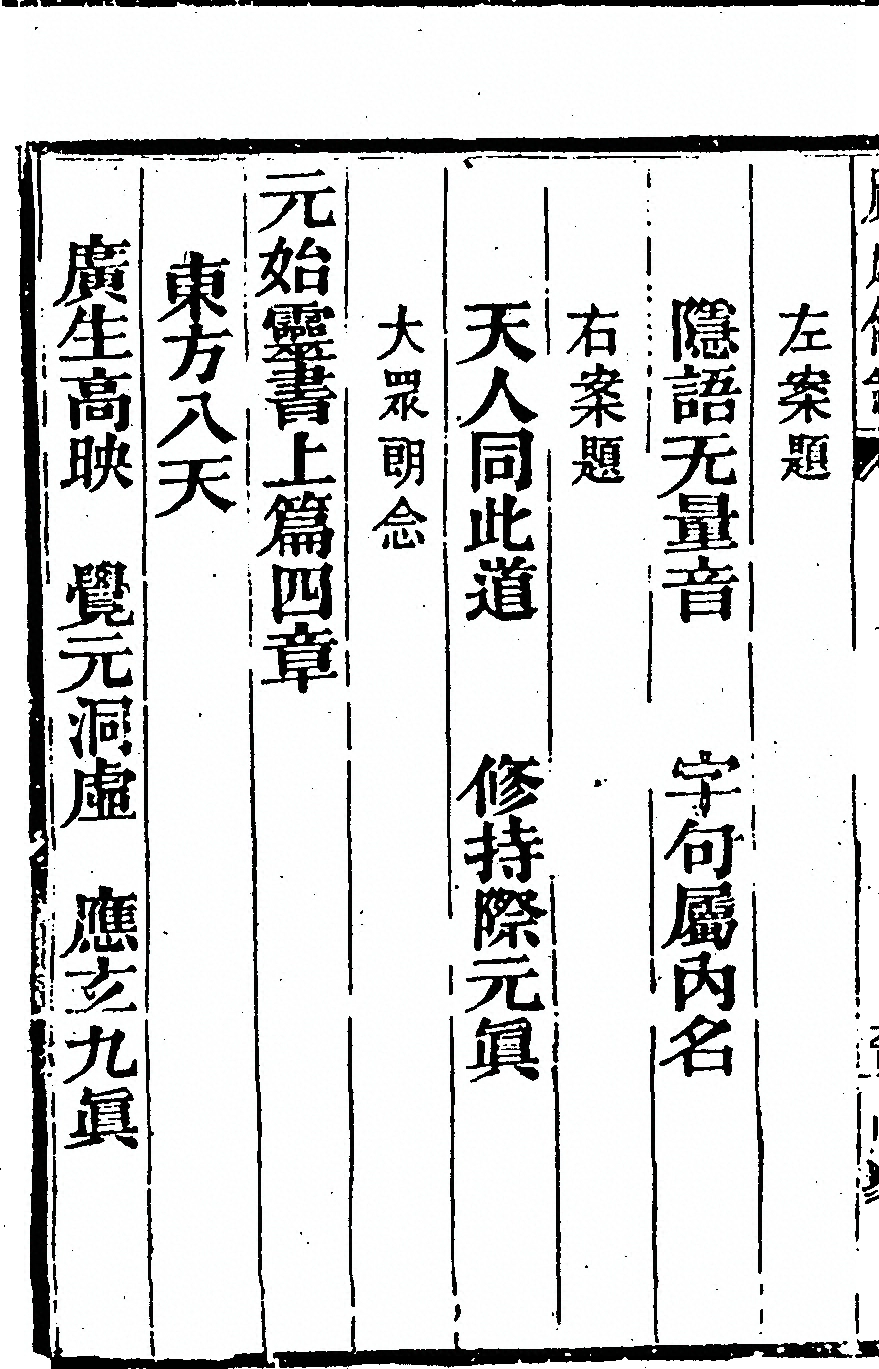 左案題
隱語无量音　字句屬內名
右案題
天人同此道　修持際元眞
大眾朗念
元始靈書上篇四章
東方八天
廣生高映　覺元洞虛　應玄九眞